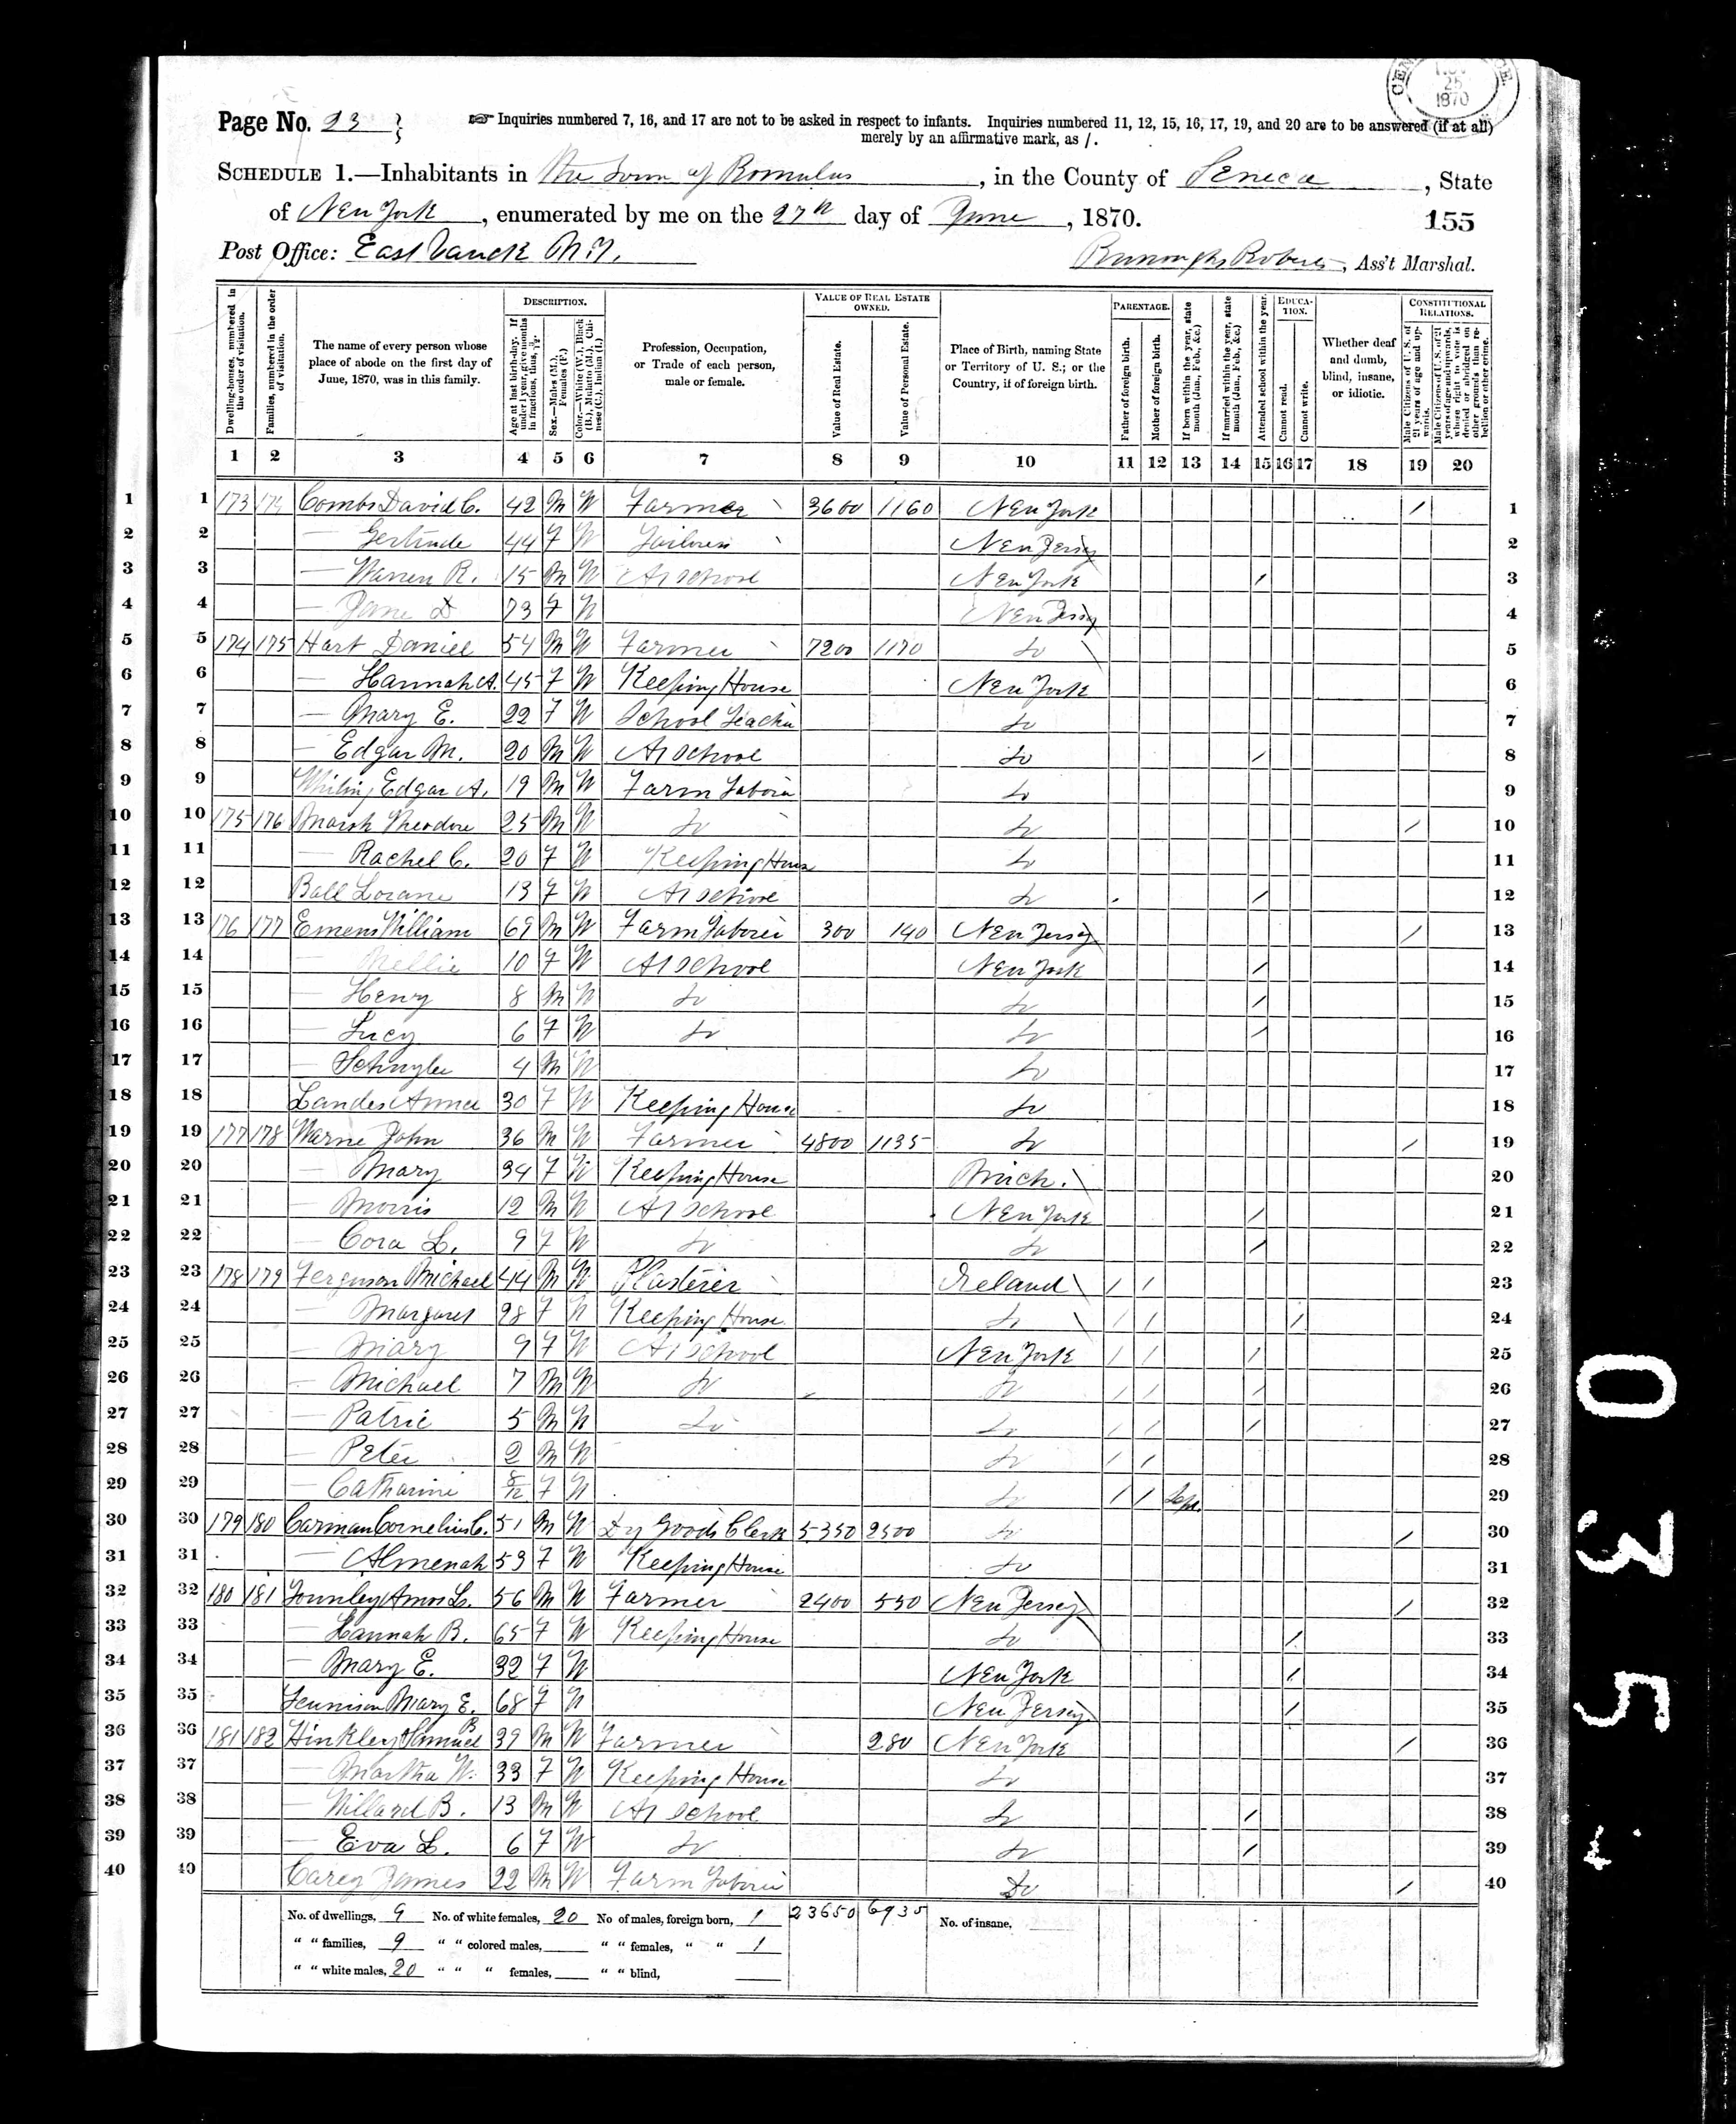 CEN CE
25
1870
Page No. 23 } Inquiries numbered 7, 16, and 17 are not to be asked in respect to infants. Inquiries numbered 11, 12, 15, 16, 17, 19, and 20 are to be answered (if at all)
merely by an affirmative mark, as /.
SCHEDULE 1.—Inhabitants in The Town of Romulus, in the County of Seneca, State
of New York, enumerated by me on the 27th day of June, 1870. 155
Post Office: East Varick N.Y. Burroughs Roberts, Ass't Marshal.
DESCRIPTION. VALUE OF REAL ESTATE OWNED. PARENTAGE. EDUCATION. CONSTITUTIONAL RELATIONS.
Dwelling-houses, numbered in the order of visitation. Families, numbered in the order of visitation. The name of every person whose place of abode on the first day of June, 1870, was in this family. Age at last birth-day. If under 1 year, give months in fractions, thus, 3/12. Sex.—Males (M.), Females (F.) Color.—White (W.), Black (B.), Mulatto (M.), Chinese (C.), Indian (I.) Profession, Occupation, or Trade of each person, male or female. Value of Real Estate. Value of Personal Estate. Place of Birth, naming State or Territory of U. S.; or the Country, if of foreign birth. Father of foreign birth. Mother of foreign birth. If born within the year, state month (Jan., Feb., &c.) If married within the year, state month (Jan., Feb., &c.) Attended school within the year. Cannot read. Cannot write. Whether deaf and dumb, blind, insane, or idiotic. Male Citizens of U. S. of 21 years of age and upwards. Male Citizens of U. S. of 21 years of age and upwards, whose right to vote is denied or abridged on other grounds than rebellion or other crime.
1 2 3 4 5 6 7 8 9 10 11 12 13 14 15 16 17 18 19 20
1 1 173 174 Combs David C. 42 M W Farmer 3600 1160 New York / 1
2 2 — Gertrude 44 F W Tailoress New Jersey 2
3 3 — Warren R. 15 M W At School New York / 3
4 4 — Jane D 73 F W New Jersey 4
5 5 174 175 Hart Daniel 54 M W Farmer 7200 1170 Do 5
6 6 — Hannah A. 45 F W Keeping House New York 6
7 7 — Mary E. 22 F W School Teacher Do 7
8 8 — Edgar M. 20 M W At School Do / 8
9 9 Edgar A. 19 M W Farm Laborer Do 9
10 10 175 176 Marsh Theodore 25 M W Do Do / 10
11 11 — Rachel C. 20 F W Keeping House Do 11
12 12 Ball Lorane 13 F W At School Do / 12
13 13 176 177 Emens William 69 M W Farm Laborer 300 140 New Jersey / 13
14 14 — Nellie 10 F W At School New York / 14
15 15 — Henry 8 M W Do Do / 15
16 16 — Lucy 6 F W Do Do / 16
17 17 — Schuyler 4 M W Do 17
18 18 Landes Anna 30 F W Keeping House Do 18
19 19 177 178 Warne John 36 M W Farmer 4800 1135 Do / 19
20 20 — Mary 34 F W Keeping House Mich. 20
21 21 — Morris 12 M W At School New York / 21
22 22 — Cora L. 9 F W Do Do / 22
23 23 178 179 Ferguson Michael 44 M W Plasterer Ireland / / 23
24 24 — Margaret 28 F W Keeping House Do / / / 24
25 25 — Mary 9 F W At School New York / / / 25
26 26 — Michael 7 M W Do Do / / / 26
27 27 — Patric 5 M W Do Do / / / 27
28 28 — Peter 2 M W Do / / 28
29 29 — Catharine 8/12 F W Do / / Sep. 29
30 30 179 180 Carman Cornelius C. 51 M W Dy Goods Clerk 5350 2500 Do / 30
31 31 — Almenah 53 F W Keeping House Do 31
32 32 180 181 Townley Amos L. 56 M W Farmer 2400 550 New Jersey / 32
33 33 — Hannah B. 65 F W Keeping House Do / 33
34 34 — Mary E. 32 F W New York / 34
35 35 Tennison Mary E. 68 F W New Jersey / 35
36 36 181 182 Hinkley Samuel B 39 M W Farmer 280 New York / 36
37 37 — Martha W. 33 F W Keeping House Do 37
38 38 — Willard B. 13 M W At School Do / 38
39 39 — Eva L. 6 F W Do Do / 39
40 40 Carey James 22 M W Farm Laborer Do / 40
No. of dwellings, 9 No. of white females, 20 No of males, foreign born, 1 23650 6935 No. of insane,
" " families, 9 " " colored males, " " females, " " 1
" " white males, 20 " " " females, " " blind,
035